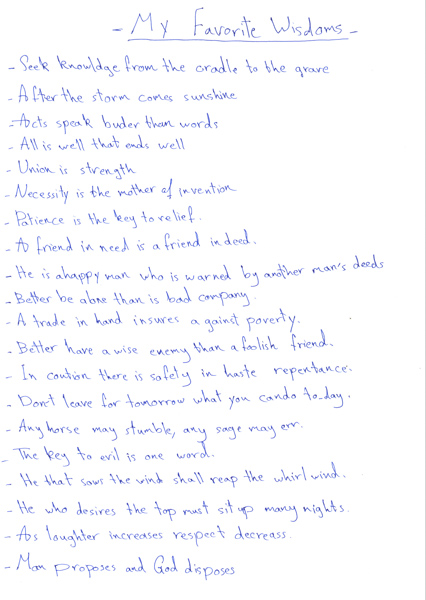 - My Favorite Wisdoms -
- Seek knowldge from the cradle to the grave
- After the storm comes sunshine
- Acts speak louder than words
- All is well that ends well
- Union is strength
- Necessity is the mother of invention
- Patience is the key to relief.
- A friend in need is a friend indeed.
- He is a happy man who is warned by another man's deeds
- Better be alone than is bad company.
- A trade in hand insures against poverty.
- Better have a wise enemy than a foolish friend.
- In caution there is safety in haste repentance.
- Don't leave for tomorrow what you can do to-day.
- Any horse may stumble, any sage may err.
- The key to evil is one word.
- He that sows the wind shall reap the whirlwind.
- He who desires the top must sit up many nights.
- As laughter increases respect decreass.
- Man proposes and God disposes